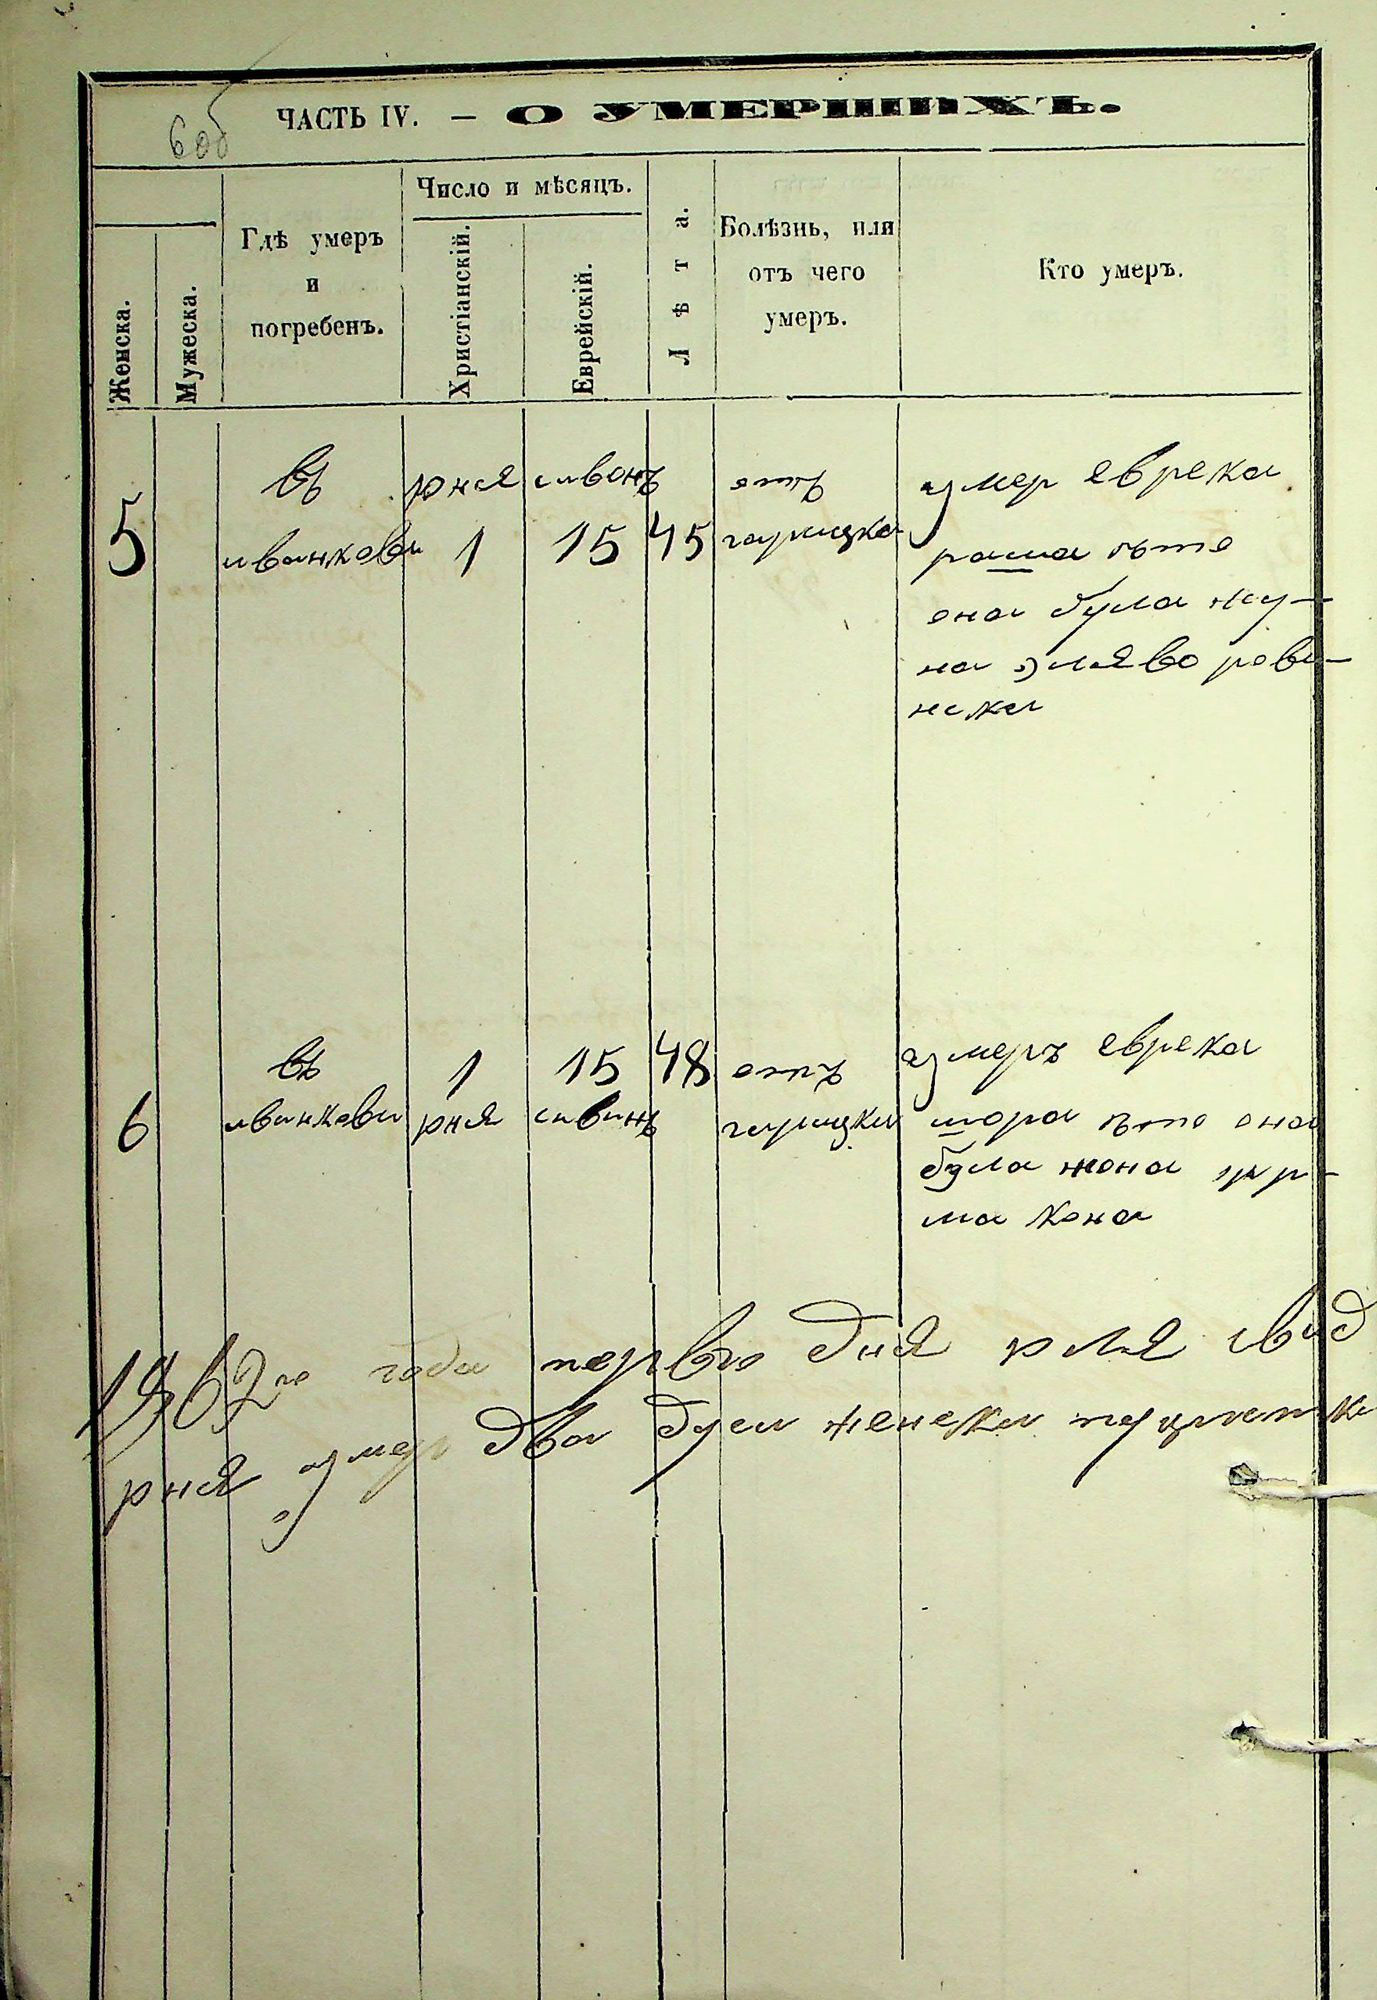 6об
ЧАСТЬ IV. — О УМЕРШИХЪ.
Женска.
Мужеска.
Гдѣ умеръ
и
погребенъ.
Число и мѣсяцъ.
Христіанскій.
Еврейскій.
Лѣта.
Болѣзнь, или
отъ чего
умеръ.
Кто умеръ.
5
въ
иванкови
юня
1
сивонъ
15
45
отъ
гарицка
умер еврека
раша ъто
она була жу-
на эляво рови-
нска
6
въ
иванкови
1
юня
15
сивинъ
48
отъ
гарицки
умеръ еврека
шора ъто она
була жона
ма кона
1862го года перво дня юля
юня умер два дуси женски